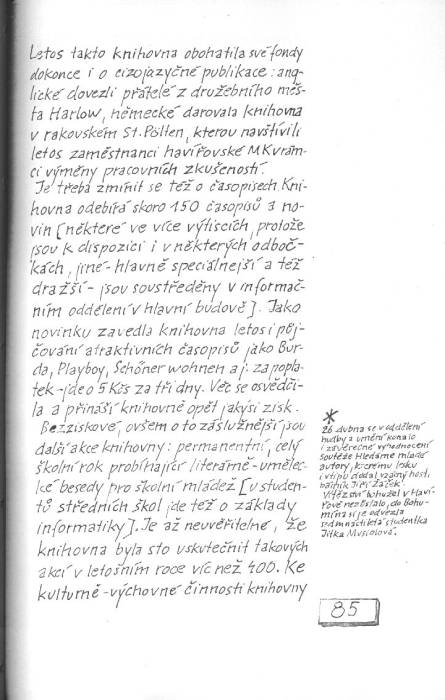 Letos takto knihovna obohatila své fondy
dokonce i o cizojazyčné publikace: ang-
lické dovezli přátelé z družebního měs-
ta Harlow, německé darovala knihovna
v rakouském St. Pölten, kterou navštívili
letos zaměstnanci havířovské MK v rám-
ci výměny pracovních zkušeností.
Je třeba zmínit se též o časopisech. Kni-
hovna odebírá skoro 150 časopisů a no-
vin [některé ve více výtiscích, protože
jsou k dispozici i v některých odboč-
kách, jiné - hlavně speciálnejší a též
dražší - jsou soustředěny v informač-
ním oddělení v hlavní budově]. Jako
novinku zavedla knihovna letos i půj-
čování atraktivních časopisů jako Bur-
da, Playboy, Schöner wohnen aj. za popla-
tek - jde o 5 Kčs za tři dny. Věc se osvědči-
la a přináší knihovně opět jakýsi zisk.
Bezziskové, ovšem o to záslužnější jsou
další akce knihovny: permanentní, celý
školní rok probíhající literárně-umělec-
ké besedy pro školní mládež [u studen-
tů středních škol jde též o základy
informatiky]. Je až neuvěřitelné, že
knihovna byla sto uskutečnit takových
akcí v letošním roce víc než 400. Ke
kulturně-výchovné činnosti knihovny
*
26. dubna se v oddělení
hudby a umění konalo
i závěrečné vyhodnocení
soutěže Hledáme mladé
autory, kterému lesku
i vtipu dodal vzácný host,
básník Jiří Žáček.
Vítězství bohužel v Haví-
řově nezůstalo, do Bohu-
mína si je odvezla
sedmnáctiletá studentka
Jitka Musiolová.
85